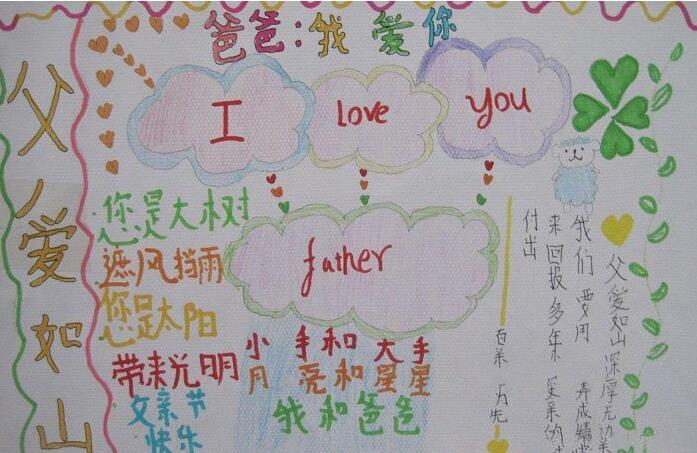 爸爸:我爱你
父爱如山
I love you
father
您是大树
遮风挡雨
您是太阳
带来光明
父亲节
快乐
小手和大手
月亮和星星
我和爸爸
父爱如山深厚无
我们 要用
来回报多年 父亲的
付出